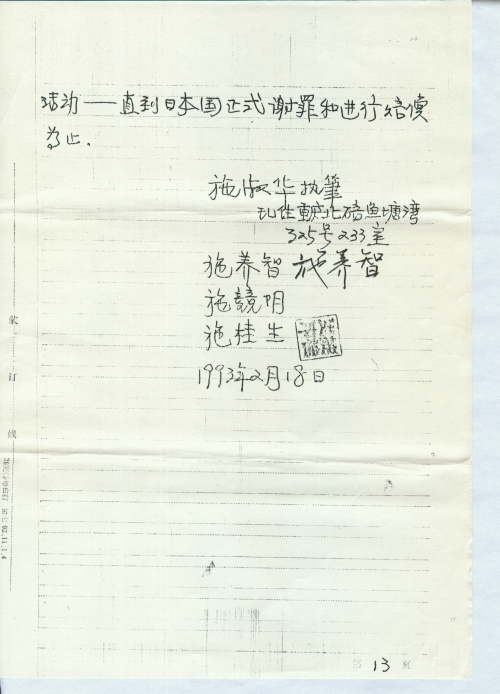 活动——直到日本国正式谢罪和进行赔偿
为止.
施淑华执筆
现住重庆北碚鱼塘湾
325号233室
施养智 施养智
施競明
施桂生
1993年2月18日
装
订
线
第 13 页